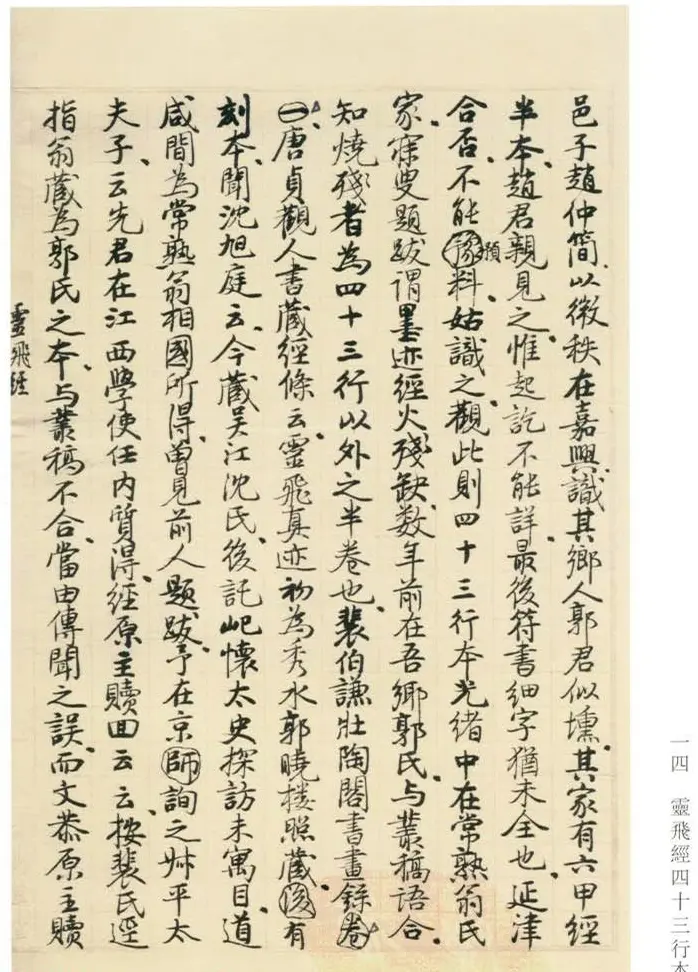 邑子趙仲簡以微秩在嘉興識其鄉人郭君似壎其家有六甲經
半本趙君親見之惟起訖不能詳最後符書細字猶未全也延津
合否不能豫預料姑識之觀此則四十三行本光緒中在常熟翁氏
家寐叟題跋謂墨迹經火殘缺数年前在吾鄉郭氏与叢稿語合
知燒殘者為四十三行以外之半卷也裴伯謙壯陶閣書畫錄卷
一唐貞觀人書藏經條云靈飛真迹初為秀水郭曉楼照藏後有
刻本聞沈旭庭云今藏吴江沈氏後託屺懷太史探訪未寓目道
咸間為常熟翁相國所得曽見前人題跋予在京師詢之姊平太
夫子云先君在江西學使任内質得經原主贖回云云按裴氏逕
指翁藏為郭氏之本与叢稿不合當由傳聞之誤而文恭原主贖
靈飛經
一四 靈飛經四十三行本